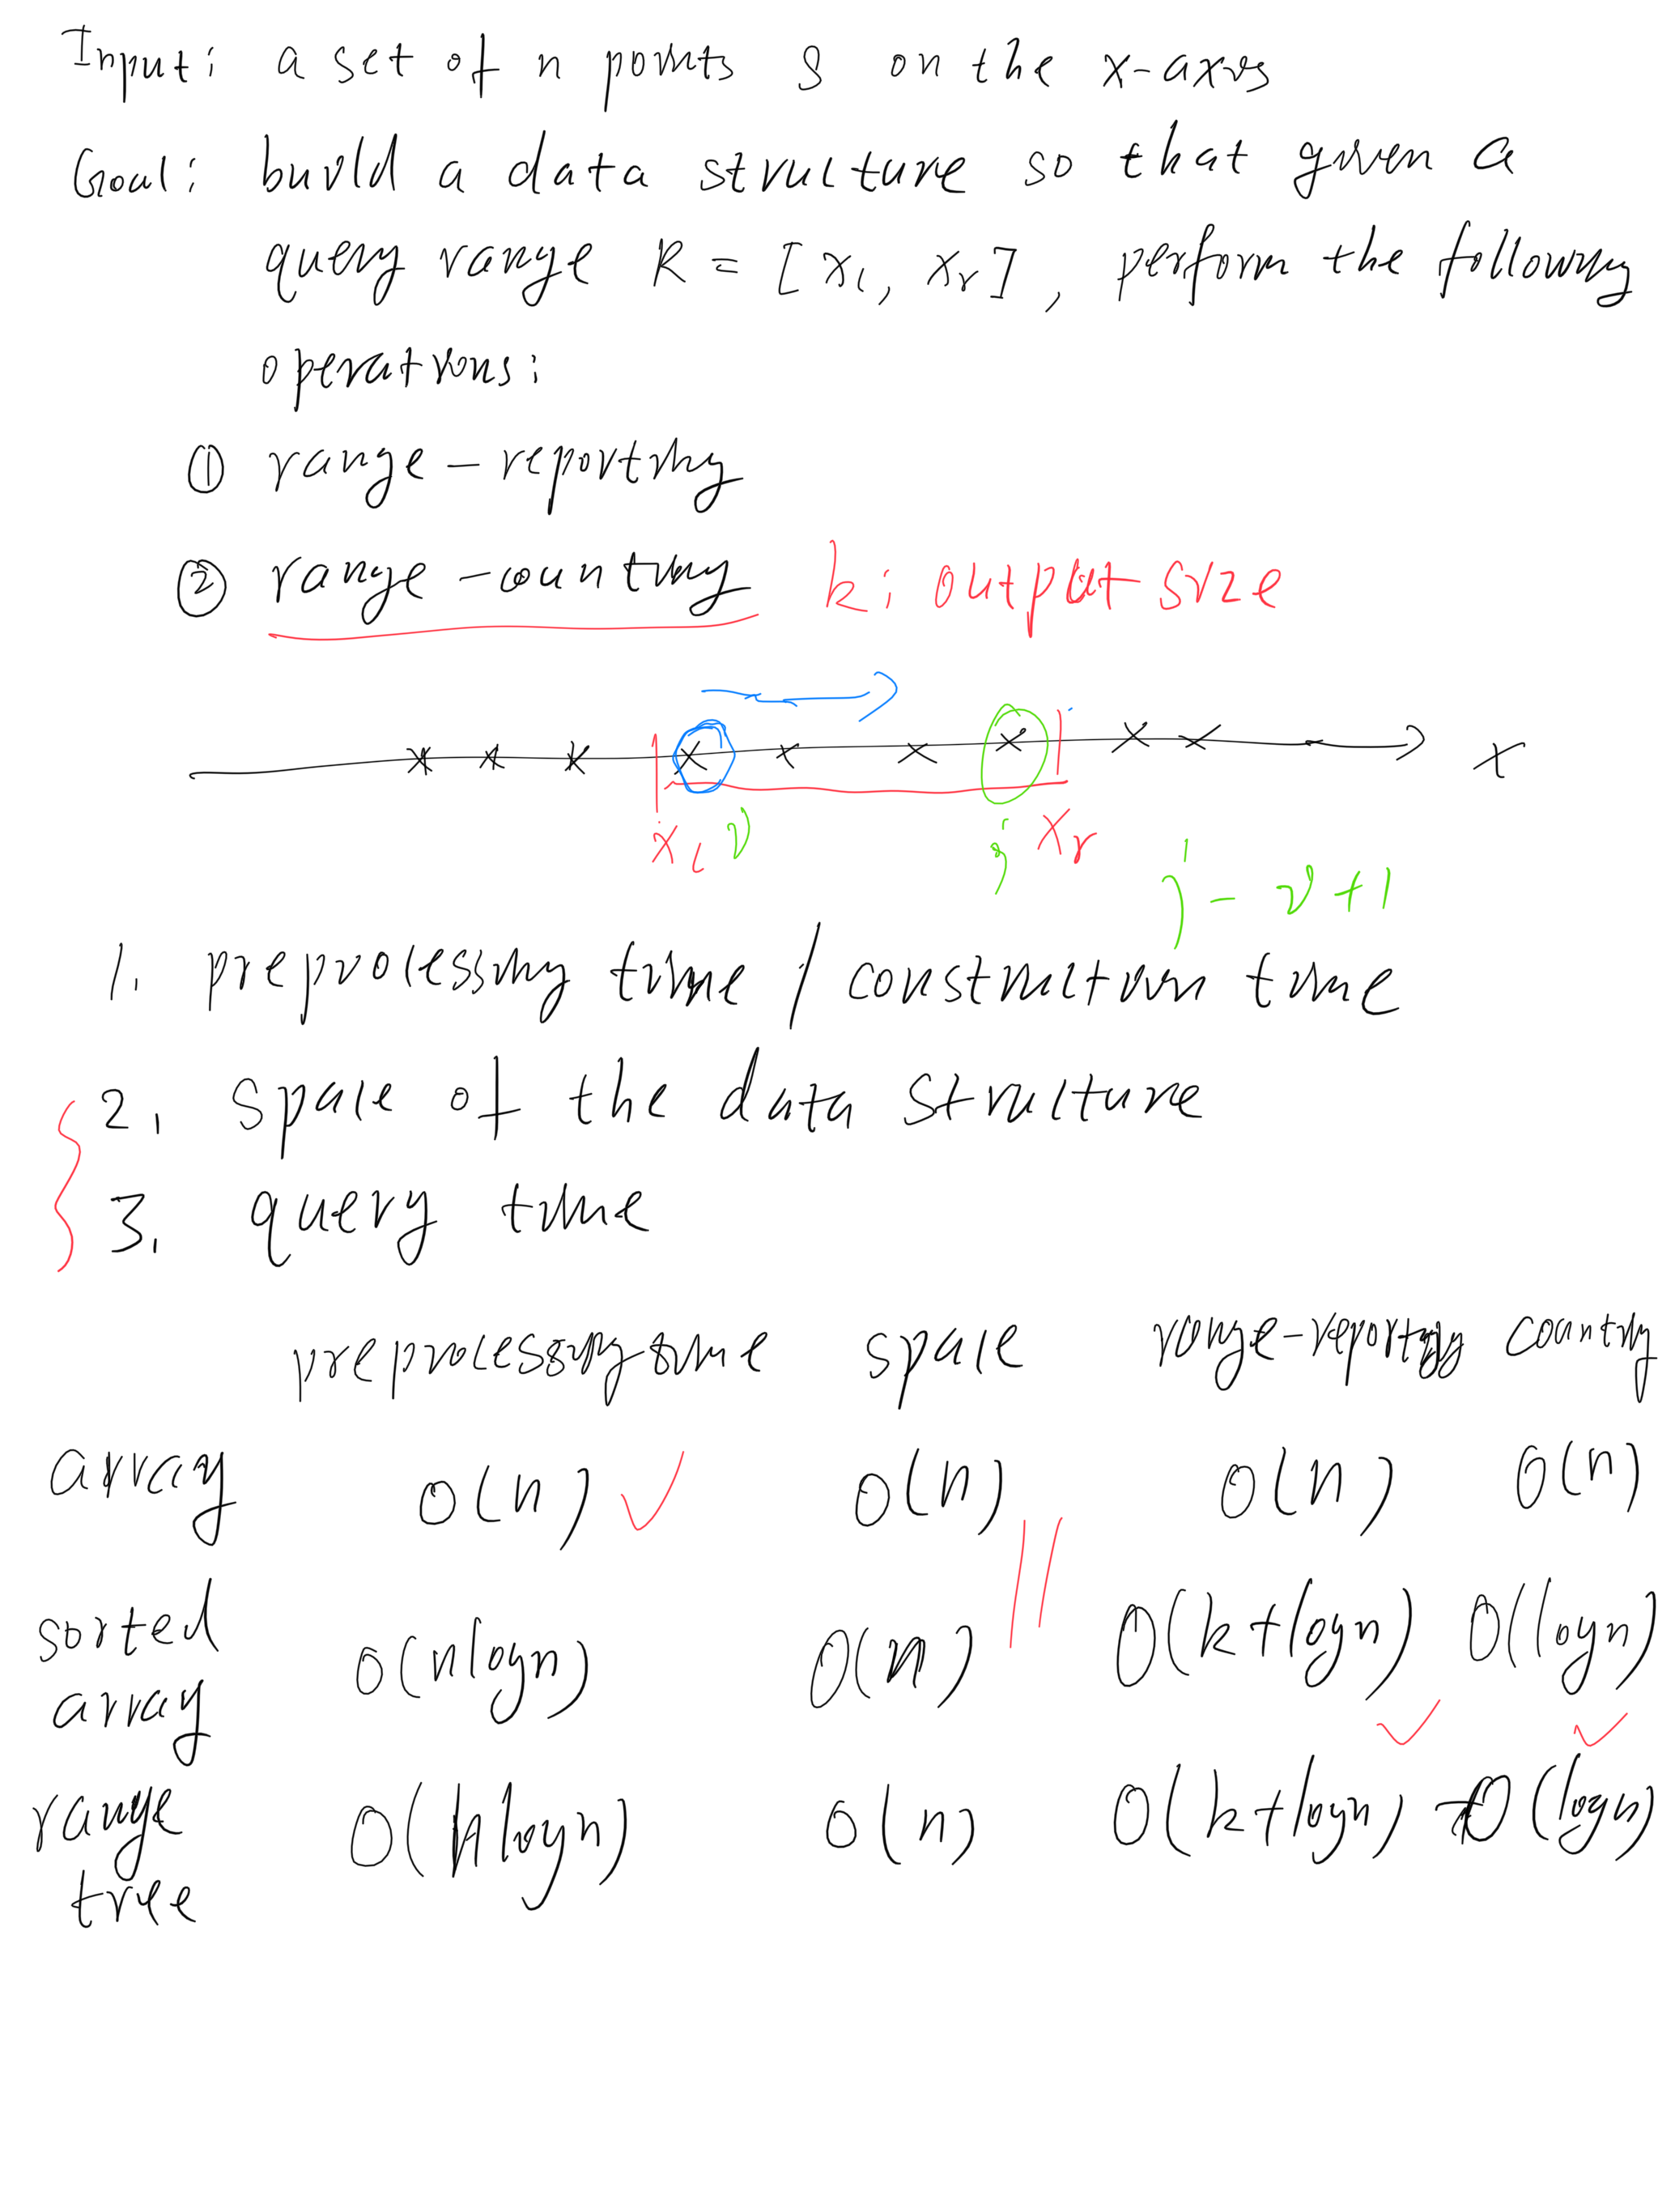 Input: a set of n points S on the x-axis
Goal: build a data structure so that given a
query range R = [xl, xr], perform the following
operations:
① range-reporting
② range-counting k: output size
x
xl i j xr
j - i + 1
1. preprocessing time / construction time
2. space of the data structure
3. query time
preprocessing time space range-reporting counting
array O(n) ✓ O(n) O(n) O(n)
sorted
array O(nlogn) O(n) O(k+logn) ✓ O(logn) ✓
range
tree O(nlogn) O(n) O(k+logn) O(logn)